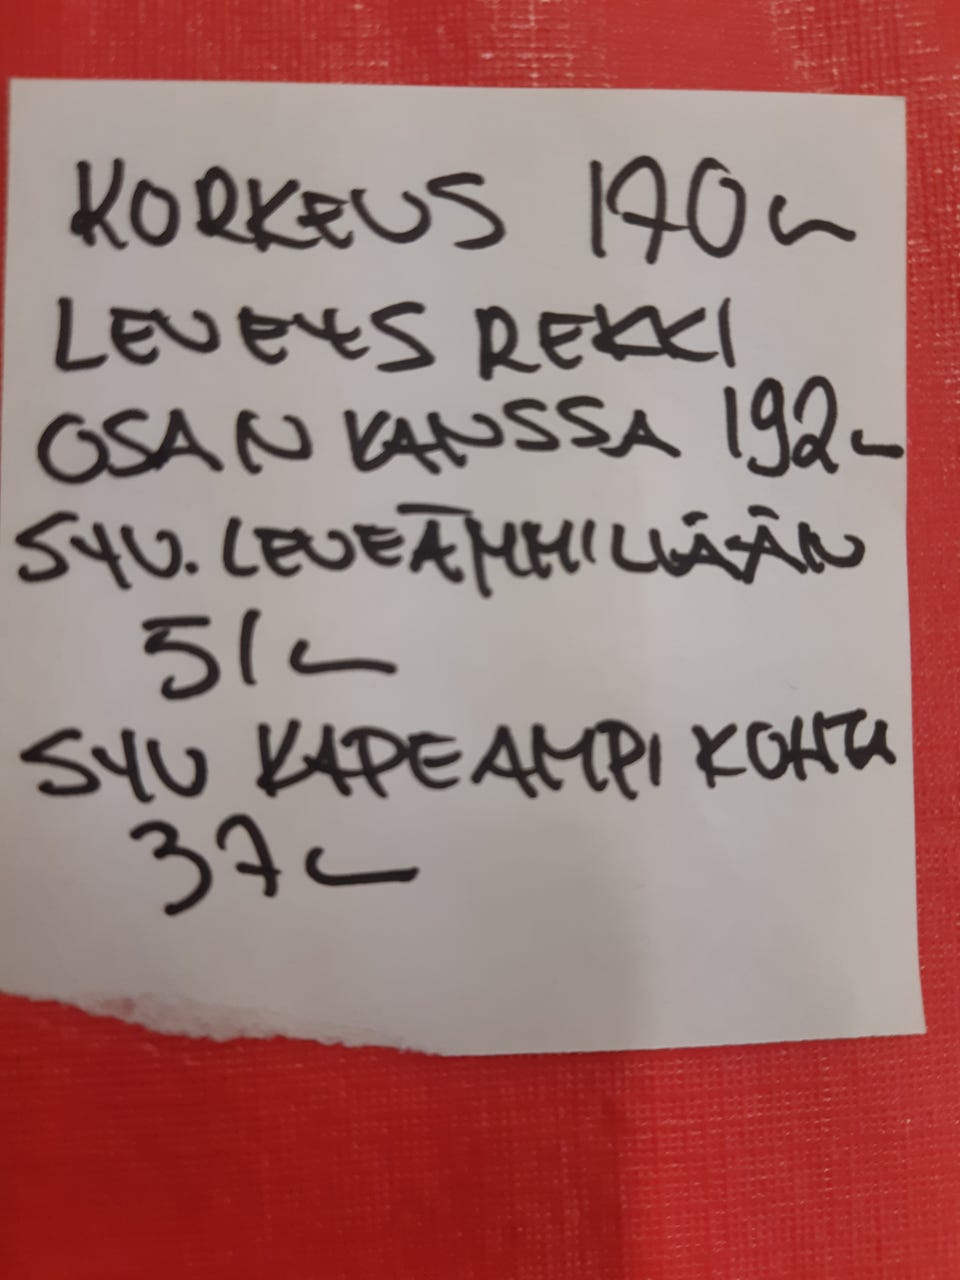 KORKEUS 170 cm
LEVEYS REKKI
OSAN KANSSA 192 cm
SYV. LEVEÄMMILLÄÄN
51 cm
SYV KAPEAMPI KOHTA
37 cm